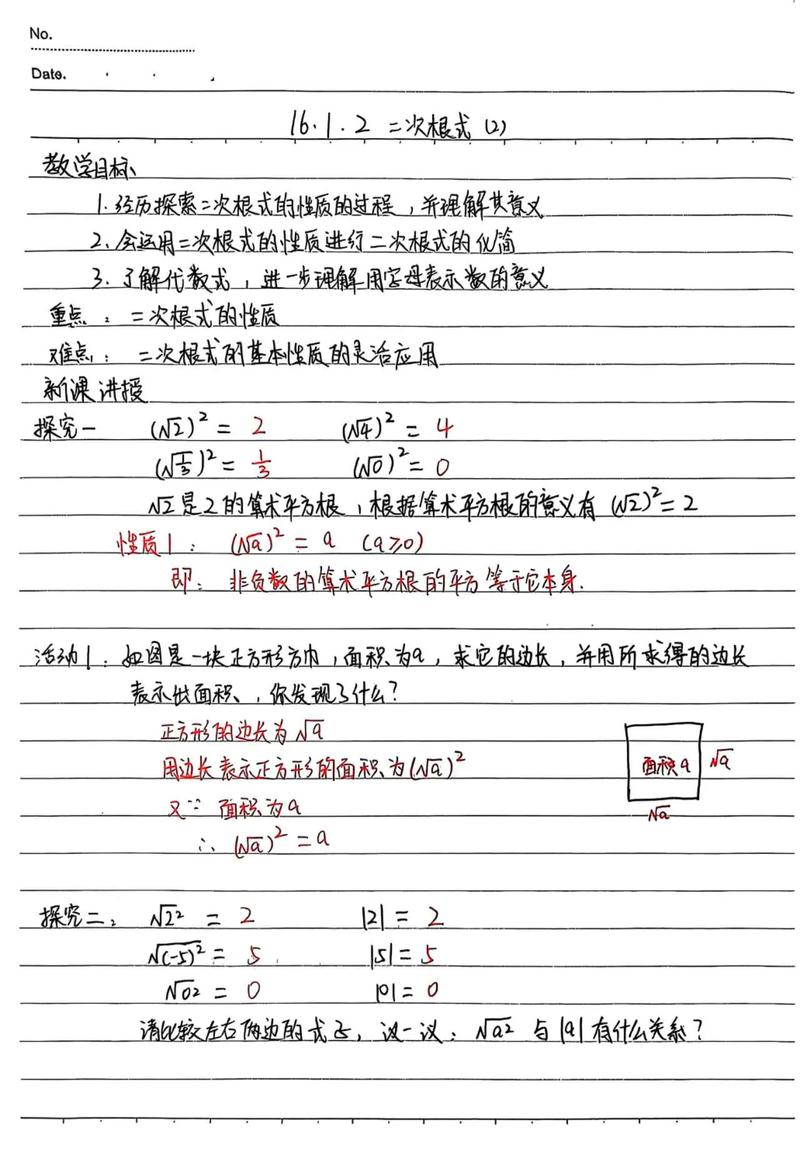 No.
Date.
16.1.2 二次根式(2)
教学目标
1.经历探索二次根式的性质的过程,并理解其意义
2.会运用二次根式的性质进行二次根式的化简
3.了解代数式,进一步理解用字母表示数的意义
重点:二次根式的性质
难点:二次根式的基本性质的灵活应用
新课讲授
探究一 (√2)² = 2 (√4)² = 4
(√(1/3))² = 1/3 (√0)² = 0
√2是2的算术平方根,根据算术平方根的意义有(√2)² = 2
性质1: (√a)² = a (a≥0)
即:非负数的算术平方根的平方等于它本身.
活动1:如图是一块正方形方巾,面积为a,求它的边长,并用所求得的边长
表示出面积,你发现了什么?
正方形的边长为√a
用边长表示正方形的面积为(√a)²
又∵ 面积为a
∴ (√a)² = a
面积a √a
√a
探究二: √2² = 2 |2| = 2
√(-5)² = 5 |5| = 5
√0² = 0 |0| = 0
请比较左右两边的式子,议一议:√a² 与 |a| 有什么关系?